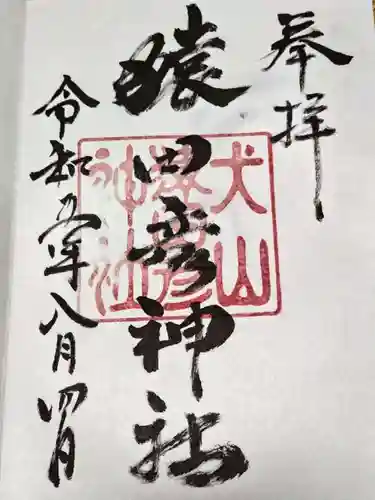 奉拝
猿田彦神社
犬山
猿田彦
神社
令和五年八月四日